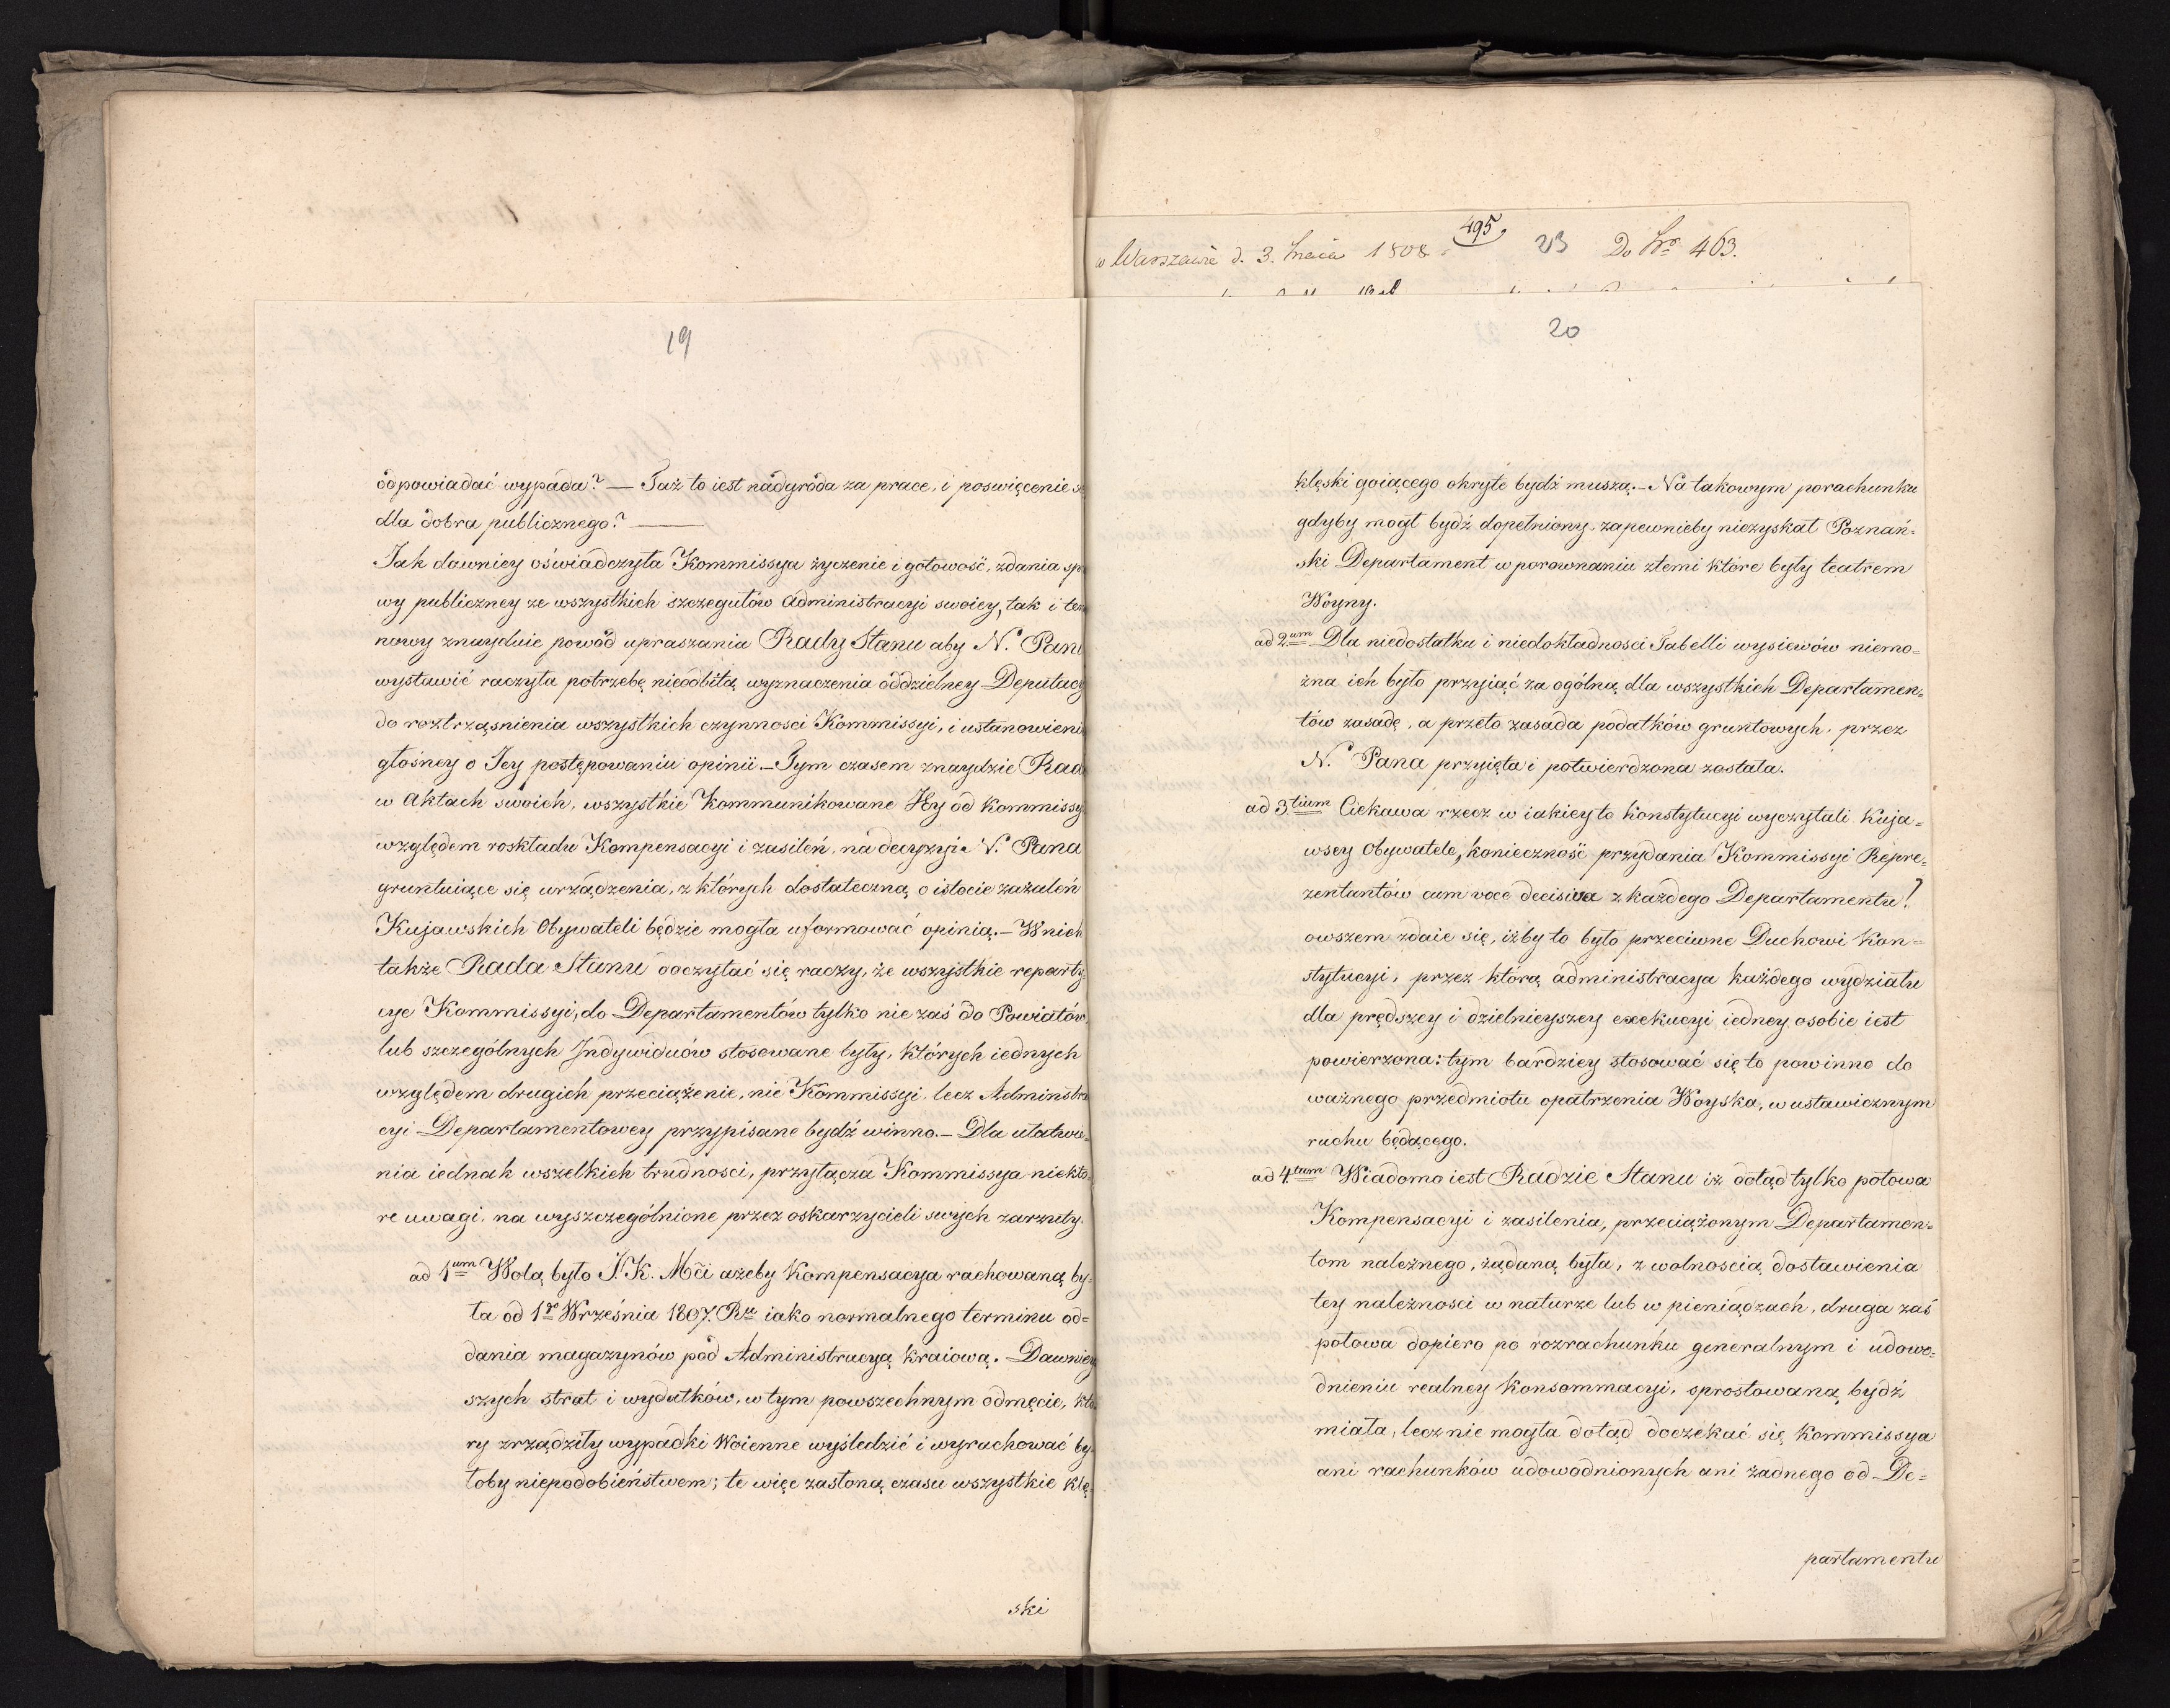 19
odpowiadać wypada? — Taż to iest nadgroda za prace, i poswięcenie
dla dobra publicznego? —
Jak dawniey oświadczyła Kommissya życzenie i gotowość, zdania
wy publiczney ze wszystkich szczegułów administracyi swoiey, tak i
nowy znayduie powód upraszania Rady Stanu aby N. Panu
wystawić raczyła potrzebę nieodbitą wyznaczenia oddzielney Deputacy
do roztrząsnienia wszystkich czynnosci Kommissyi, i ustanowieni
głośney o Jey postępowaniu opinii. — Tym czasem znaydzie Rad
w aktach swoich, wszystkie kommunikowane Jey od Kommissy
względem roskładu Kompensacyi i zasileń, na decyzyi N. Pana
gruntuiące się urządzenia, z których dostateczną o istocie zażaleń
Kujawskich Obywateli będzie mogła uformować opinią. — W nich
także Rada Stanu doczytać się raczy, że wszystkie reparty
cye Kommissyi, do Departamentów tylko nie zaś do Powiatów,
lub szczególnych Jndywiduów stosowane były, których iednych
względem drugich przeciążenie, nie Kommissyi, lecz Adminstra
cyi Departamentowey przypisane bydź winno. — Dla ułatwie
nia iednak wszelkich trudnosci, przyłącza Kommissya niektó
re uwagi, na wyszczególnione przez oskarzycieli swych zarzuty.
ad 1um Wolą było J. K. Mći ażeby Kompensacya rachowaną by=
ła od 1go Września 1807. Ru iako normalnego terminu od=
dania magazynów pod Administracyą kraiową. Dawniey
szych strat i wydatków, w tym powszechnym odmęcie, któ
ry zrządziły wypadki Woienne wyśledzić i wyrachować by=
łoby niepodobieństwem; te więc zasłoną czasu wszystkie klę
ski
w Warszawie d. 3. Maia 1808.
495
23
Do Nro 463.
20
klęski goiącego okryte bydź muszą. — Na takowym porachunku
gdyby mogł bydź dopełniony zapewnieby niezyskał Poznań=
ski Departament w porownaniu ztemi które były teatrem
Woyny.
ad 2um Dla niedostatku i niedokładnosci Tabelli wysiewów niemo=
żna ich było przyiąć za ogólną dla wszystkich Departamen=
tów zasadę, a przeto zasada podatków gruntowych, przez
N. Pana przyięta i potwierdzona została.
ad 3tium Ciekawa rzecz w iakiey to konstytucyi wyczytali Kuja=
wscy Obywatele, konieczność przydania Kommissyi Repre=
zentantów cum voce decisiva z każdego Departamentu!
owszem zdaie się, iżby to było przeciwne Duchowi Kon=
stytucyi, przez którą administracya każdego wydziału
dla prędszey i dzielnieyszey exekucyi iedney osobie iest
powierzona: tym bardziey stosować się to powinno do
ważnego przedmiotu opatrzenia Woyska, w ustawicznym
ruchu będącego.
ad 4tum Wiadomo iest Radzie Stanu iż dotąd tylko połowa
Kompensacyi i zasilenia, przeciążonym Departamen=
tom należnego, żądaną była, z wolnoscią dostawienia
tey należnosci w naturze lub w pieniądzach, druga zaś
połowa dopiero po rozrachunku generalnym i udowo=
dnieniu realney Konsommacyi, sprostowaną bydź
miała, lecz nie mogła dotąd doczekać się Kommissya
ani rachunków udowodnionych ani żadnego od De=
partamentu